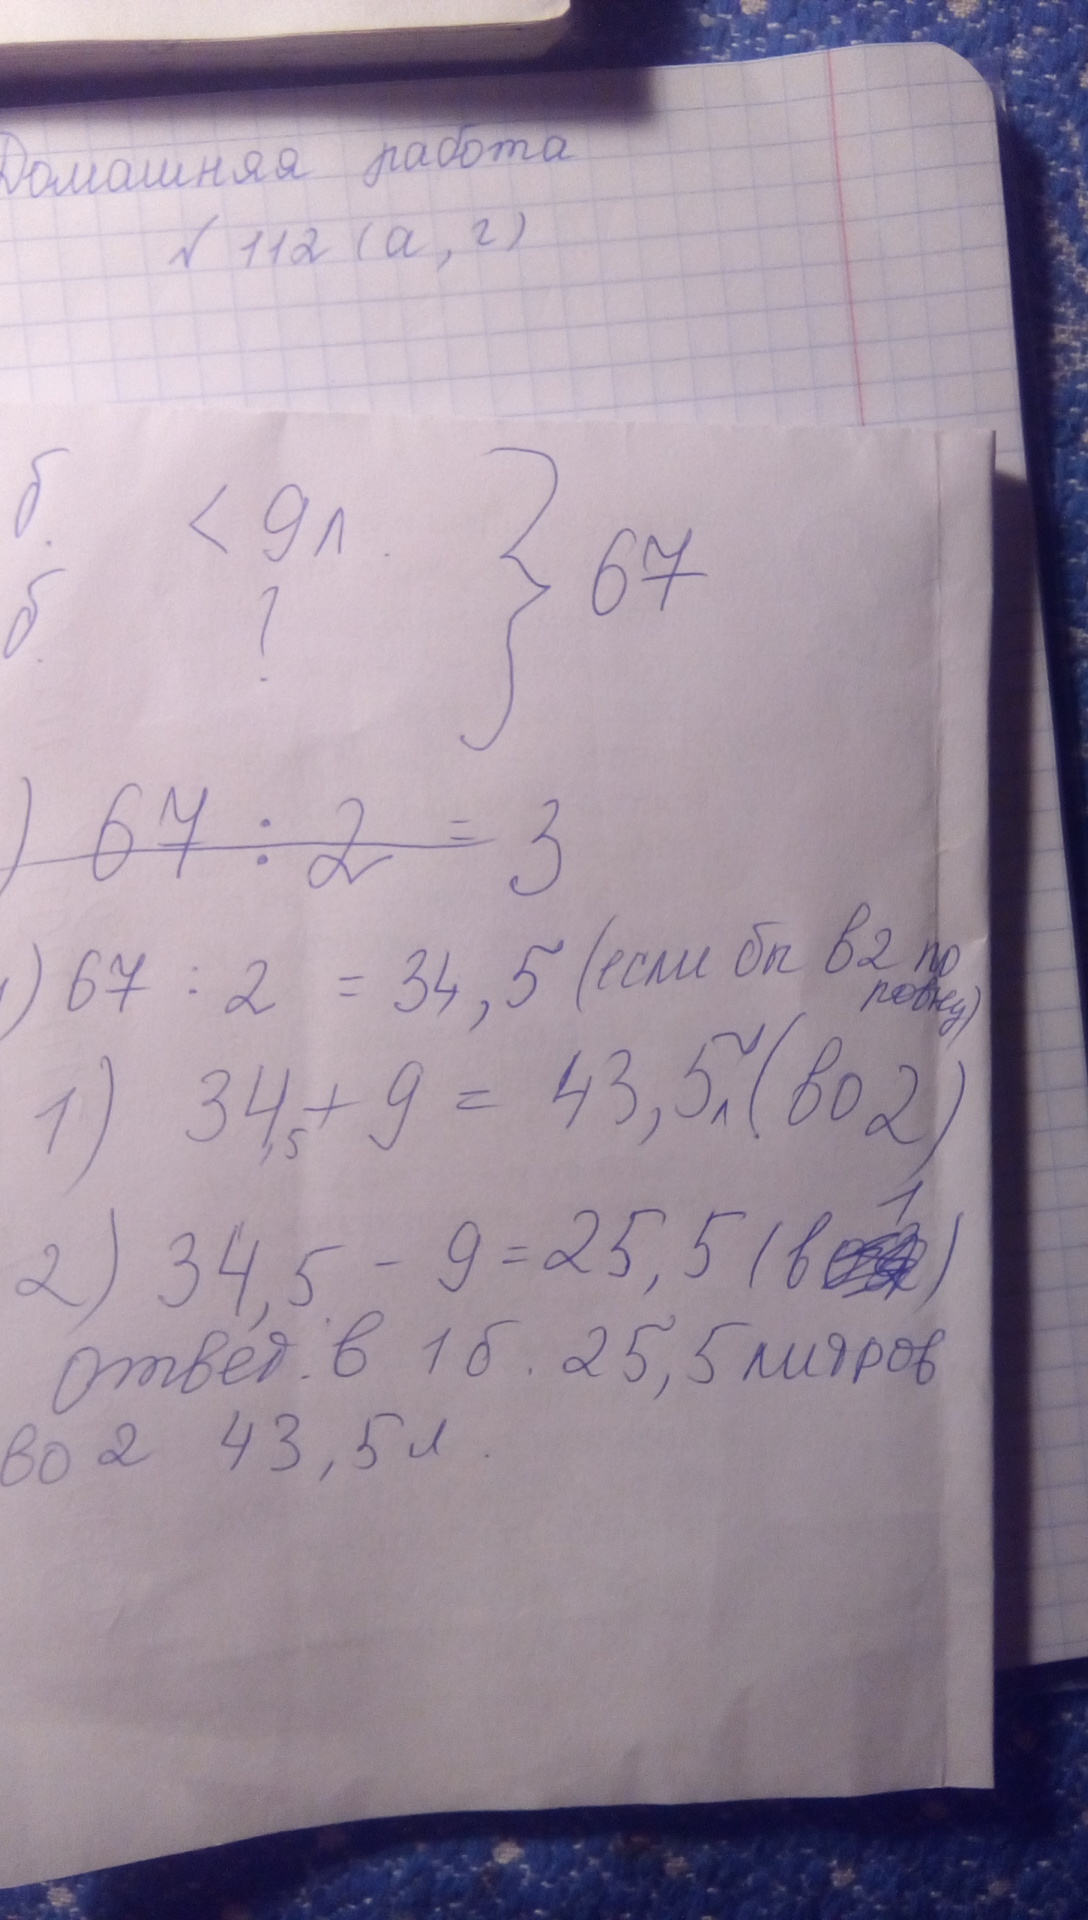 Домашняя работа
√ 112 (а, г)
б. < 9л.
б. ?
} 67
) 67 : 2 = 3
1) 67 : 2 = 34,5 (если бы в 2 по
ровну)
1) 34,5 + 9 = 43,5л (во 2)
2) 34,5 - 9 = 25,5 (в 1)
ответ. в 1 б. 25,5 литров
во 2 43,5 л.